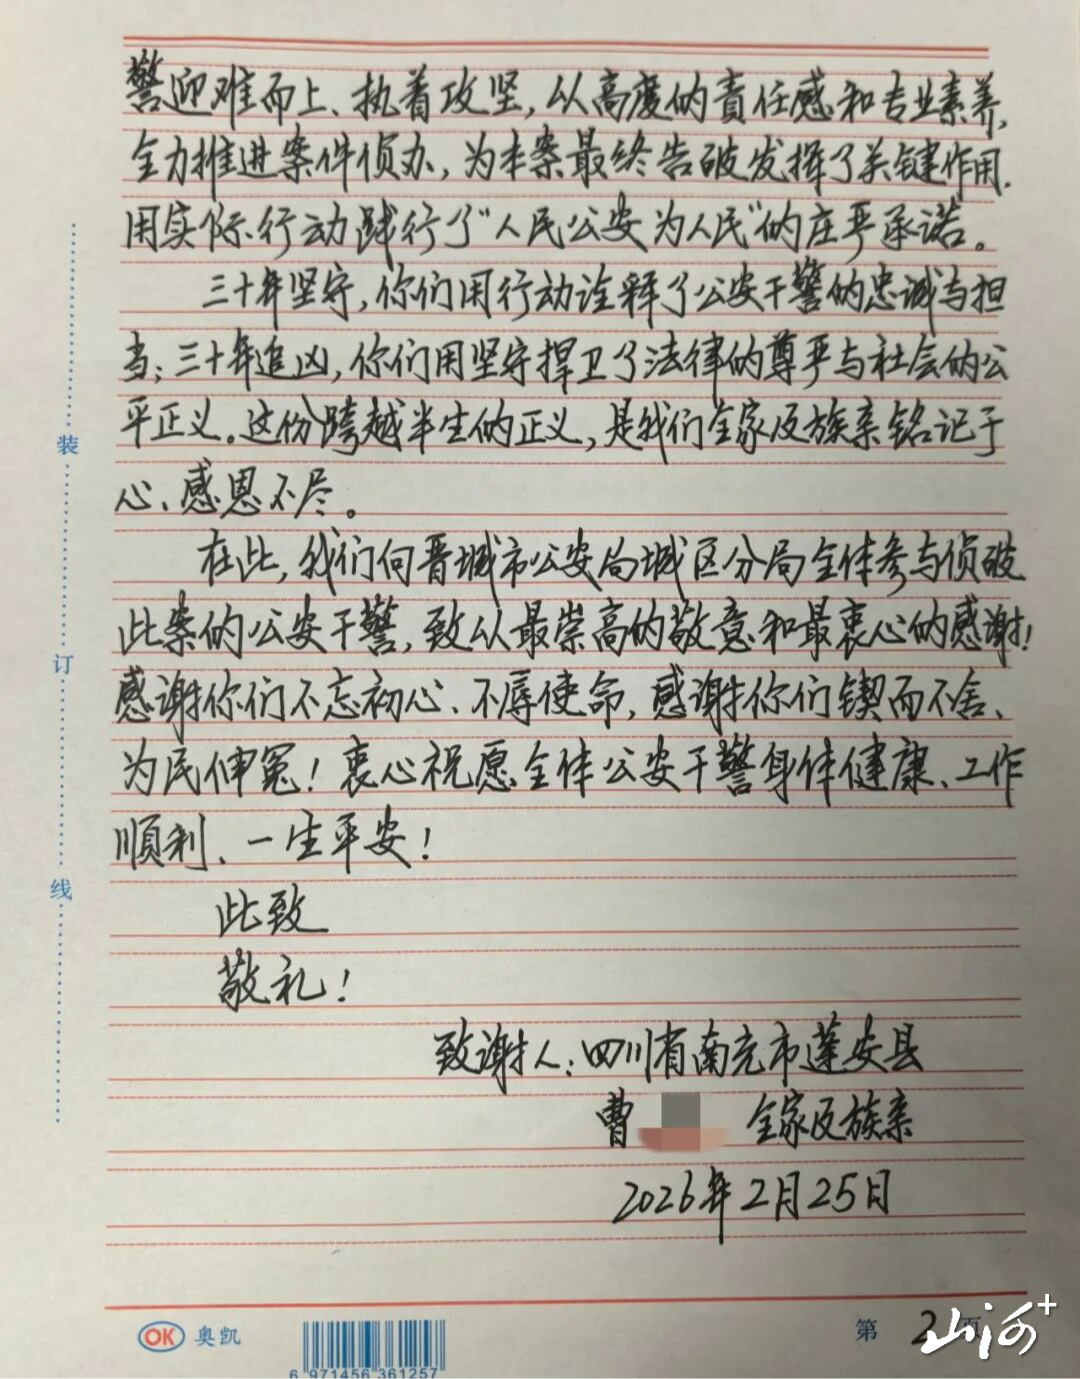 警迎难而上、执着攻坚，以高度的责任感和专业素养，
全力推进案件侦办，为本案最终告破发挥了关键作用.
用实际行动践行了“人民公安为人民”的庄严承诺。
三十年坚守，你们用行动诠释了公安干警的忠诚与担
当；三十年追凶，你们用坚守捍卫了法律的尊严与社会的公
平正义。这份跨越半生的正义，是我们全家及族亲铭记于
心、感恩不尽。
在此，我们向晋城市公安局城区分局全体参与侦破
此案的公安干警，致以最崇高的敬意和最衷心的感谢！
感谢你们不忘初心、不辱使命，感谢你们锲而不舍、
为民伸冤！衷心祝愿全体公安干警身体健康、工作
顺利、一生平安！
此致
敬礼！
致谢人：四川省南充市蓬安县
曹 全家及族亲
2026年2月25日
装
订
线
OK 奥凯
6 971456 361257
第 2 页
山河+